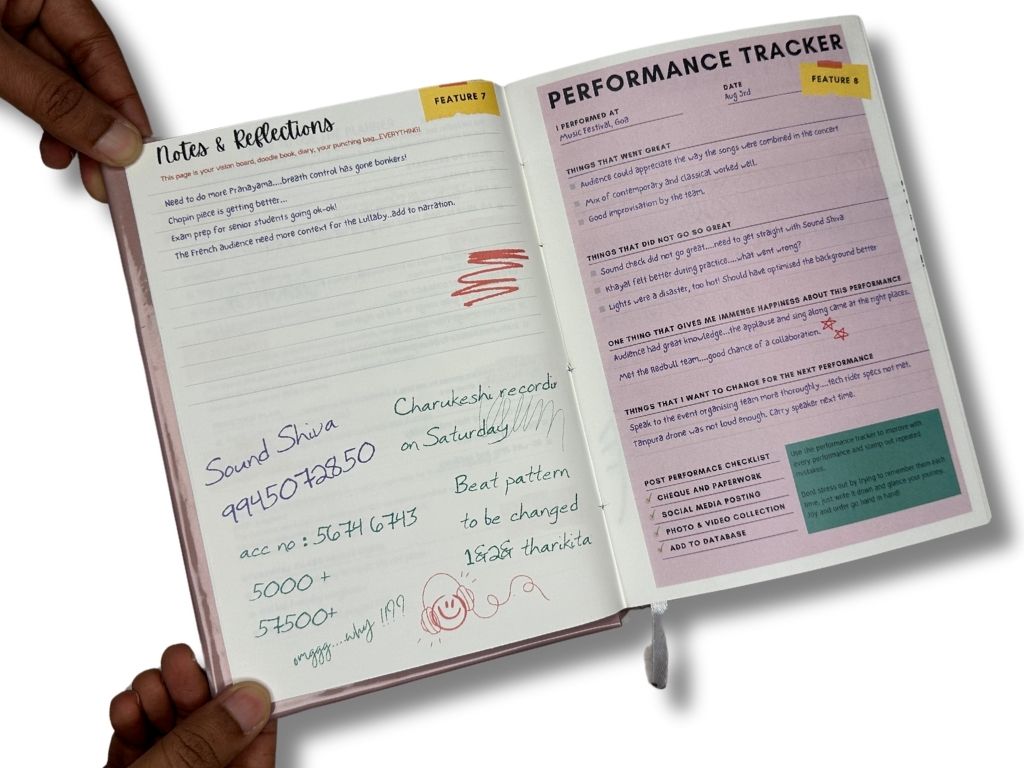 FEATURE 7
Notes & Reflections
This page is your vision board, doodle book, diary, your punching bag...EVERYTHING!
Need to do more Pranayama....breath control has gone bonkers!
Chopin piece is getting better...
Exam prep for senior students going ok-ok!
The French audience need more context for the Lullaby..add to narration.
Charukeshi recordi
on Saturday
Sound Shiva
9945072850
Beat pattern
to be changed
1&2& tharikita
acc no : 5674 6743
5000 +
57500+
omggg....why !!??
PERFORMANCE TRACKER
FEATURE 8
I PERFORMED AT
Music Festival, Goa
DATE
Aug 3rd
THINGS THAT WENT GREAT
Audience could appreciate the way the songs were combined in the concert
Mix of contemporary and classical worked well.
Good improvisation by the team.
THINGS THAT DID NOT GO SO GREAT
Sound check did not go great....need to get straight with Sound Shiva
Khayal felt better during practice.....what went wrong?
Lights were a disaster, too hot! Should have optimised the background better
ONE THING THAT GIVES ME IMMENSE HAPPINESS ABOUT THIS PERFORMANCE
Audience had great knowledge...the applause and sing along came at the right places.
Met the Redbull team....good chance of a collaboration.
THINGS THAT I WANT TO CHANGE FOR THE NEXT PERFORMANCE
Speak to the event organising team more thoroughly....tech rider specs not met.
Tanpura drone was not loud enough. Carry speaker next time.
POST PERFORMACE CHECKLIST
CHEQUE AND PAPERWORK
SOCIAL MEDIA POSTING
PHOTO & VIDEO COLLECTION
ADD TO DATABASE
Use the performance tracker to improve with
every performance and stamp out repeated
mistakes.
Dont stress out by trying to remember them each
time, just write it down and glance your journey.
Joy and order go hand in hand!